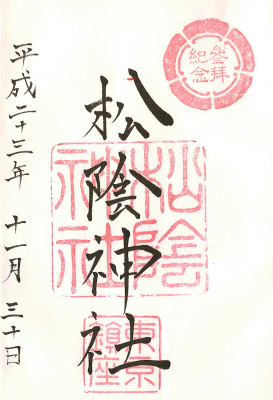 参拝
紀念
松陰神社
松陰
神社
東京
鎮座
平成二十三年 十一月 三十日